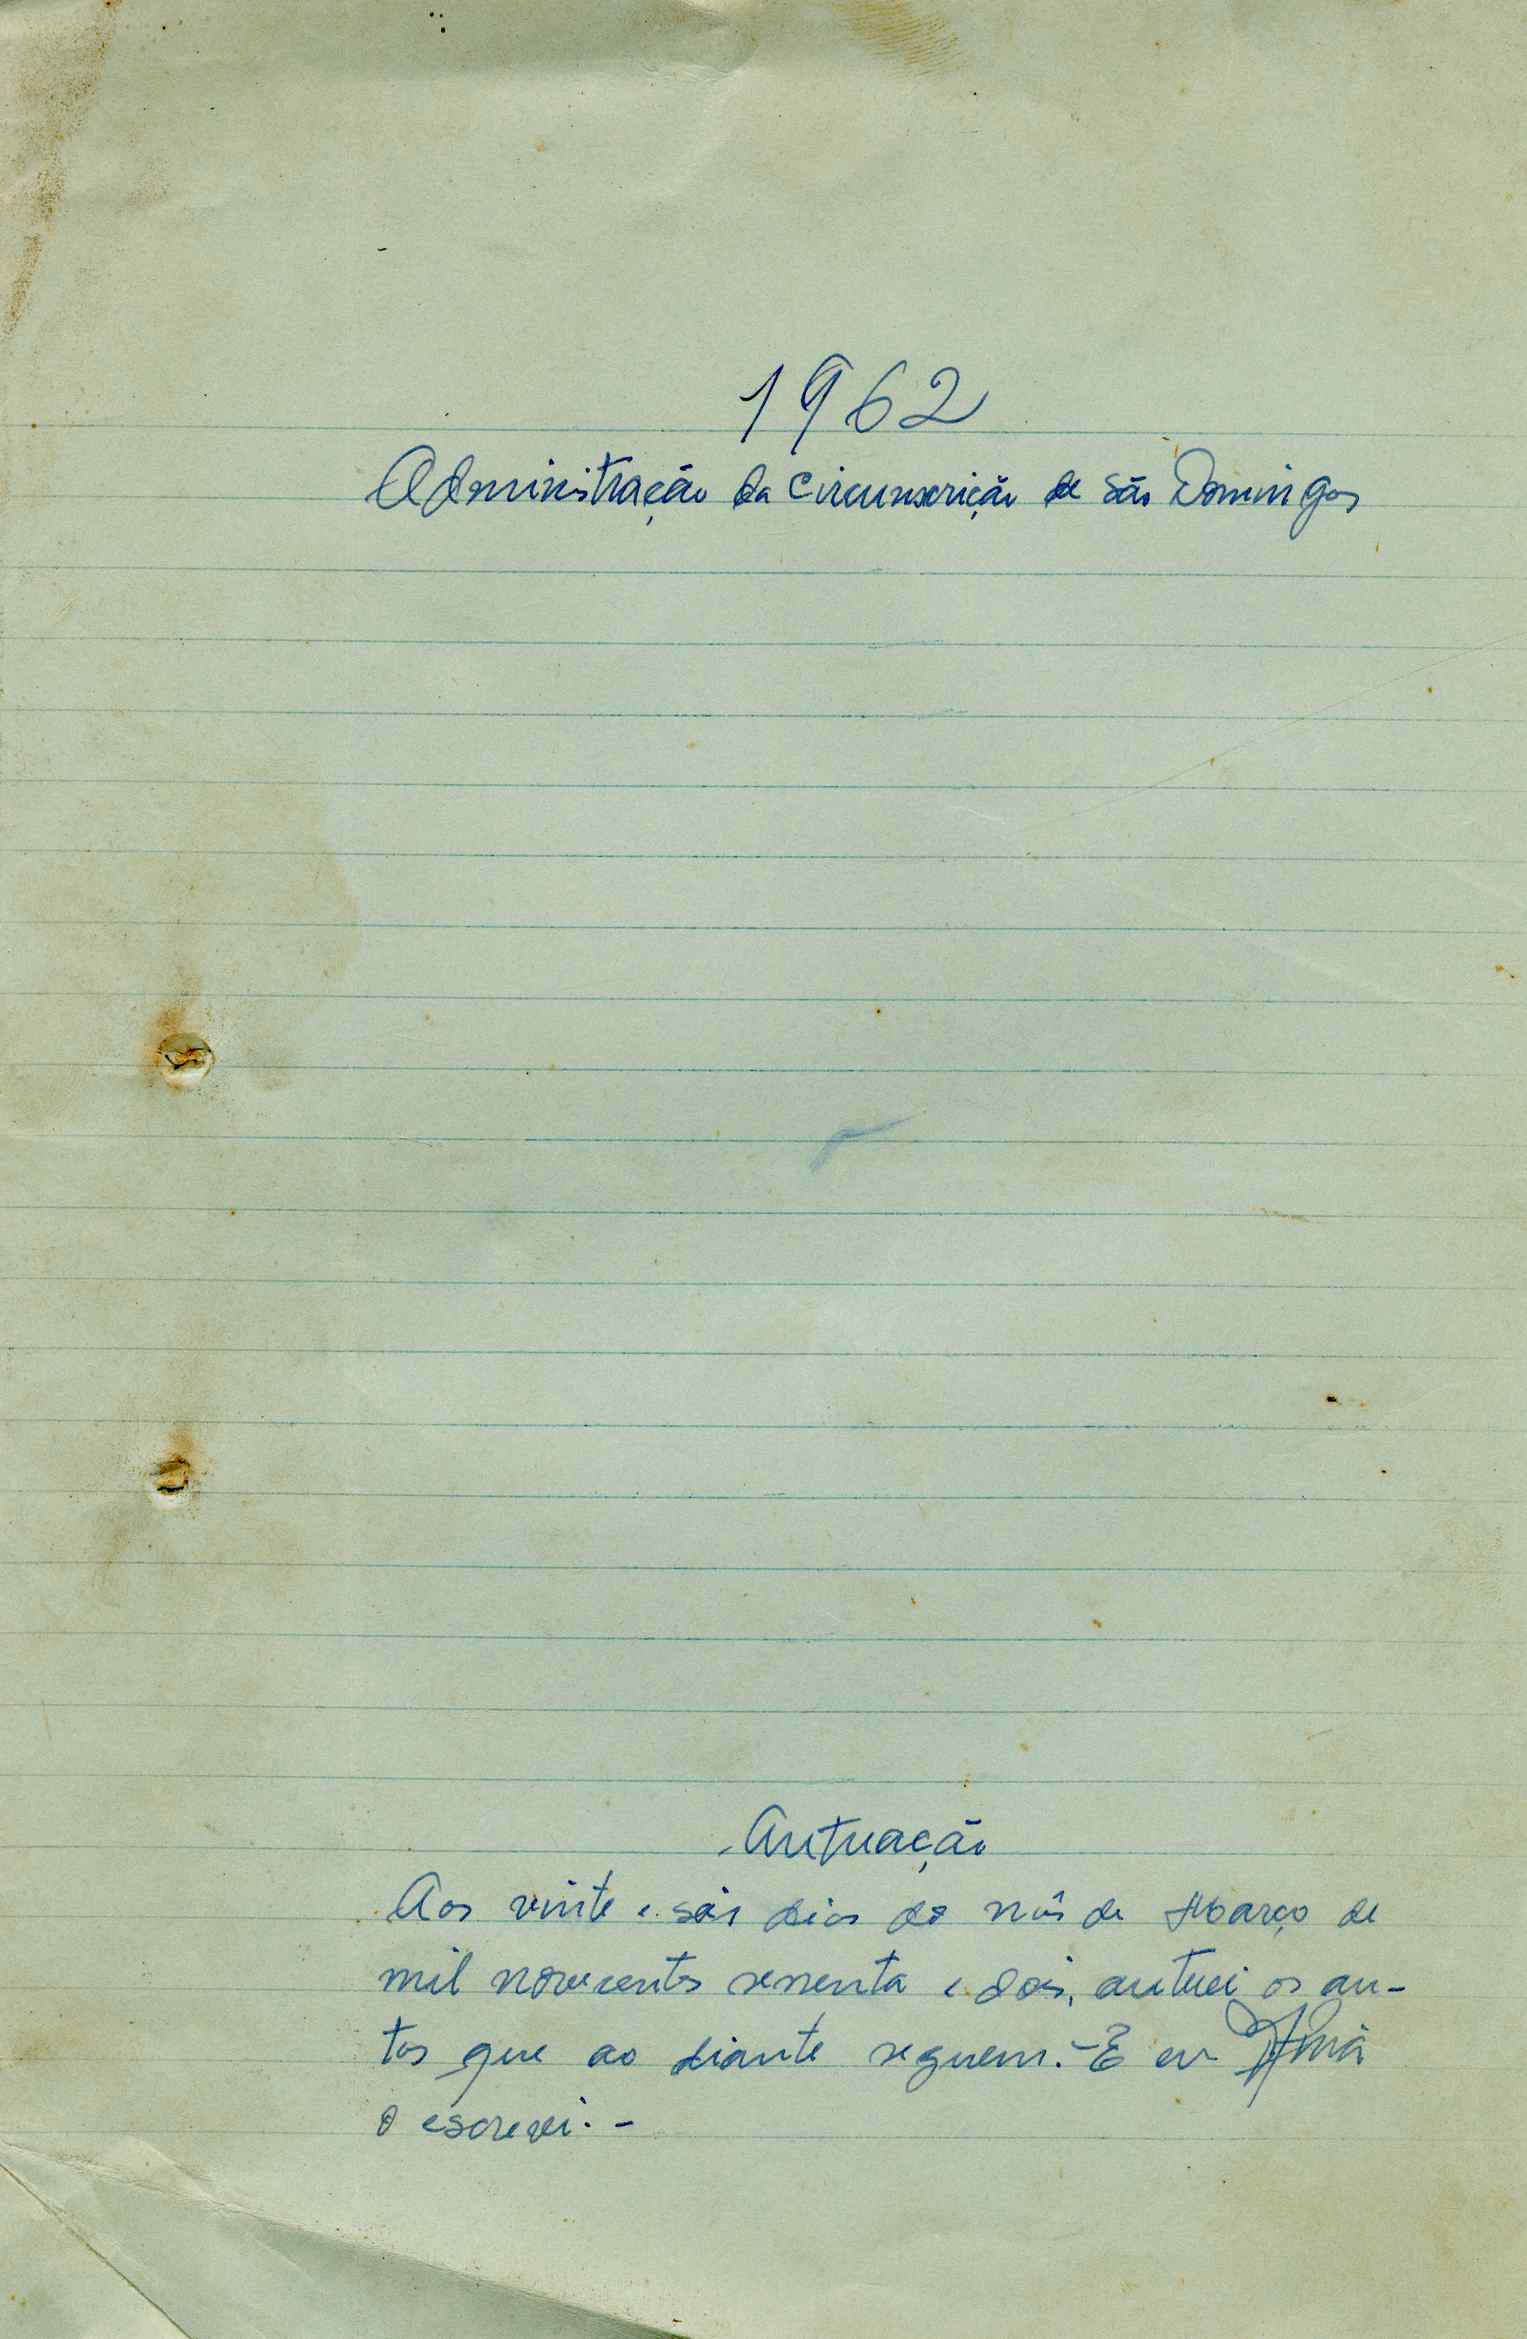 1962
Administração da Circunscrição de São Domingos
Autuação
Aos vinte e seis dias do mês de Março de
mil novecentos sessenta e dois, autuei os au-
tos que ao diante seguem. - E eu
o escrevi. -